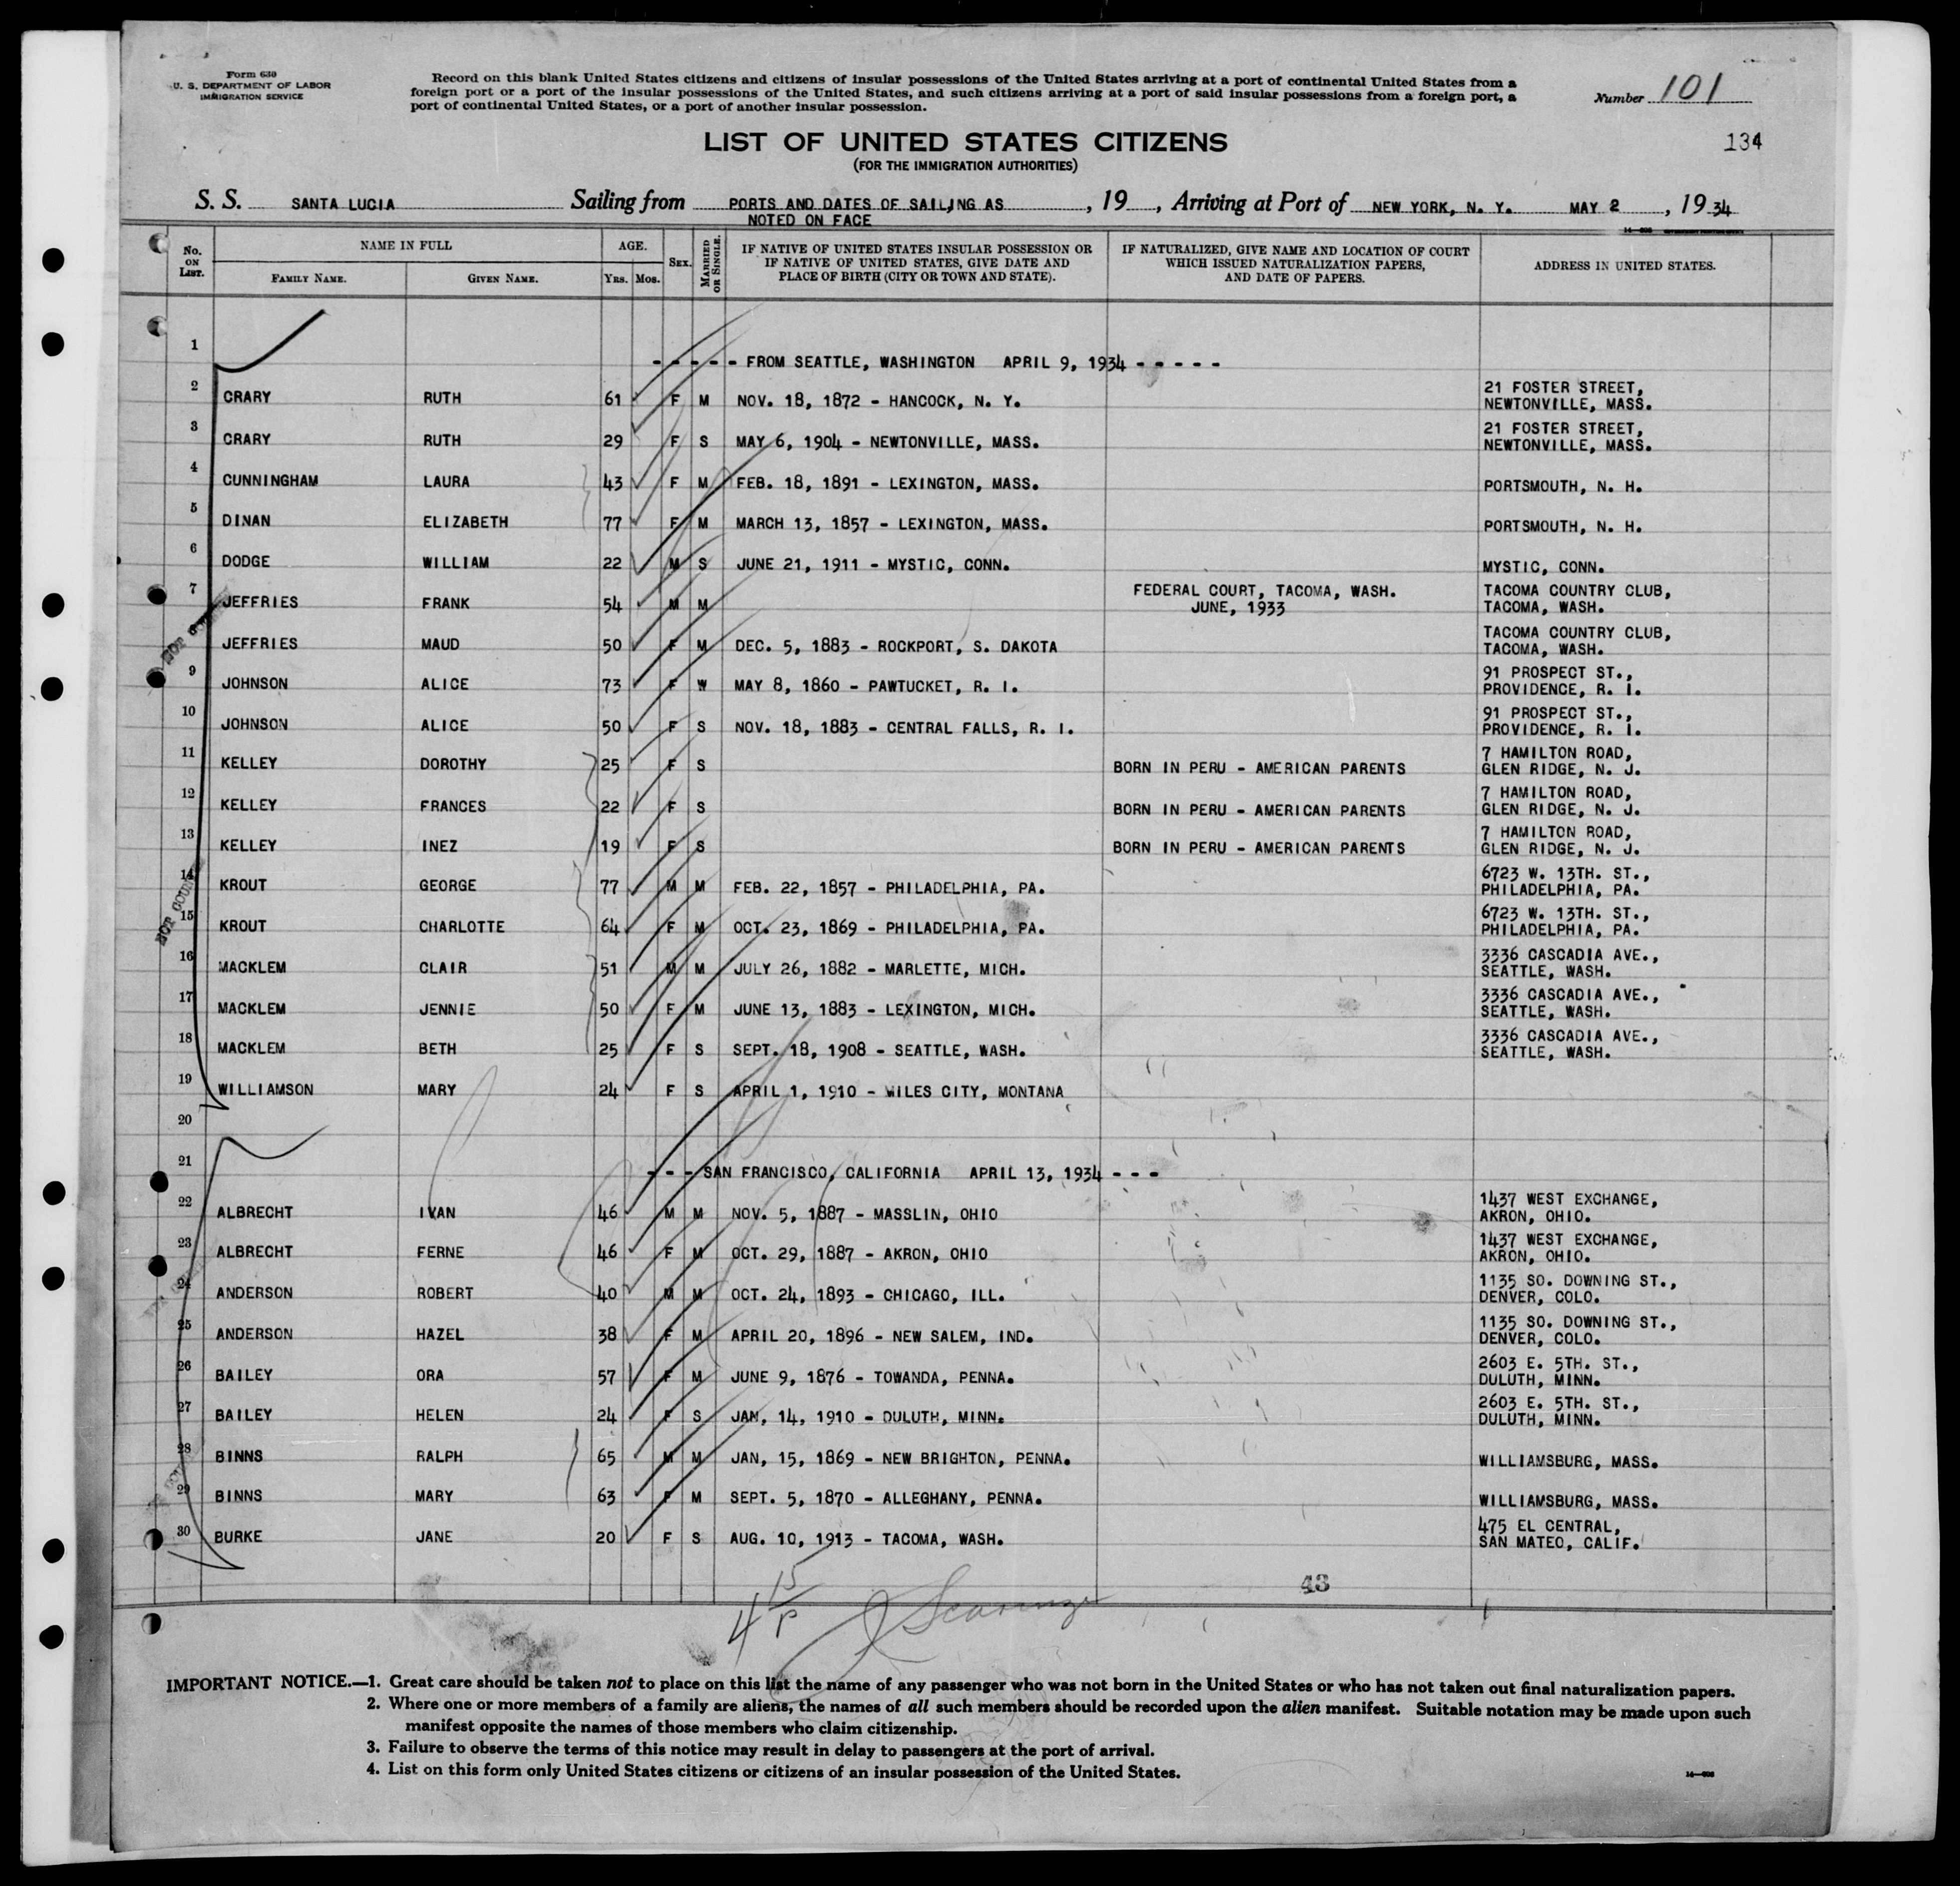 Form 630
U. S. DEPARTMENT OF LABOR
IMMIGRATION SERVICE
Record on this blank United States citizens and citizens of insular possessions of the United States arriving at a port of continental United States from a
foreign port or a port of the insular possessions of the United States, and such citizens arriving at a port of said insular possessions from a foreign port, a
port of continental United States, or a port of another insular possession.
Number 101
134
LIST OF UNITED STATES CITIZENS
(FOR THE IMMIGRATION AUTHORITIES)
S. S. SANTA LUCIA Sailing from PORTS AND DATES OF SAILING AS , 19 , Arriving at Port of NEW YORK, N. Y. MAY 2 , 19 34
NOTED ON FACE
No. ON LIST. NAME IN FULL FAMILY NAME. GIVEN NAME. AGE. YRS. MOS. SEX. MARRIED OR SINGLE. IF NATIVE OF UNITED STATES INSULAR POSSESSION OR IF NATIVE OF UNITED STATES, GIVE DATE AND PLACE OF BIRTH (CITY OR TOWN AND STATE). IF NATURALIZED, GIVE NAME AND LOCATION OF COURT WHICH ISSUED NATURALIZATION PAPERS, AND DATE OF PAPERS. ADDRESS IN UNITED STATES.
1
- - - - - FROM SEATTLE, WASHINGTON APRIL 9, 1934 - - - - -
2 CRARY RUTH 61 F M NOV. 18, 1872 - HANCOCK, N. Y. 21 FOSTER STREET, NEWTONVILLE, MASS.
3 CRARY RUTH 29 F S MAY 6, 1904 - NEWTONVILLE, MASS. 21 FOSTER STREET, NEWTONVILLE, MASS.
4 CUNNINGHAM LAURA 43 F M FEB. 18, 1891 - LEXINGTON, MASS. PORTSMOUTH, N. H.
5 DINAN ELIZABETH 77 F M MARCH 13, 1857 - LEXINGTON, MASS. PORTSMOUTH, N. H.
6 DODGE WILLIAM 22 M S JUNE 21, 1911 - MYSTIC, CONN. MYSTIC, CONN.
7 JEFFRIES FRANK 54 M M FEDERAL COURT, TACOMA, WASH. JUNE, 1933 TACOMA COUNTRY CLUB, TACOMA, WASH.
8 JEFFRIES MAUD 50 F M DEC. 5, 1883 - ROCKPORT, S. DAKOTA TACOMA COUNTRY CLUB, TACOMA, WASH.
9 JOHNSON ALICE 73 F W MAY 8, 1860 - PAWTUCKET, R. I. 91 PROSPECT ST., PROVIDENCE, R. I.
10 JOHNSON ALICE 50 F S NOV. 18, 1883 - CENTRAL FALLS, R. I. 91 PROSPECT ST., PROVIDENCE, R. I.
11 KELLEY DOROTHY 25 F S BORN IN PERU - AMERICAN PARENTS 7 HAMILTON ROAD, GLEN RIDGE, N. J.
12 KELLEY FRANCES 22 F S BORN IN PERU - AMERICAN PARENTS 7 HAMILTON ROAD, GLEN RIDGE, N. J.
13 KELLEY INEZ 19 F S BORN IN PERU - AMERICAN PARENTS 7 HAMILTON ROAD, GLEN RIDGE, N. J.
14 KROUT GEORGE 77 M M FEB. 22, 1857 - PHILADELPHIA, PA. 6723 W. 13TH. ST., PHILADELPHIA, PA.
15 KROUT CHARLOTTE 64 F M OCT. 23, 1869 - PHILADELPHIA, PA. 6723 W. 13TH. ST., PHILADELPHIA, PA.
16 MACKLEM CLAIR 51 M M JULY 26, 1882 - MARLETTE, MICH. 3336 CASCADIA AVE., SEATTLE, WASH.
17 MACKLEM JENNIE 50 F M JUNE 13, 1883 - LEXINGTON, MICH. 3336 CASCADIA AVE., SEATTLE, WASH.
18 MACKLEM BETH 25 F S SEPT. 18, 1908 - SEATTLE, WASH. 3336 CASCADIA AVE., SEATTLE, WASH.
19 WILLIAMSON MARY 24 F S APRIL 1, 1910 - MILES CITY, MONTANA
20
21 - - - SAN FRANCISCO, CALIFORNIA APRIL 13, 1934 - - -
22 ALBRECHT IVAN 46 M M NOV. 5, 1887 - MASSLIN, OHIO 1437 WEST EXCHANGE, AKRON, OHIO.
23 ALBRECHT FERNE 46 F M OCT. 29, 1887 - AKRON, OHIO 1437 WEST EXCHANGE, AKRON, OHIO.
24 ANDERSON ROBERT 40 M M OCT. 24, 1893 - CHICAGO, ILL. 1135 SO. DOWNING ST., DENVER, COLO.
25 ANDERSON HAZEL 38 F M APRIL 20, 1896 - NEW SALEM, IND. 1135 SO. DOWNING ST., DENVER, COLO.
26 BAILEY ORA 57 F M JUNE 9, 1876 - TOWANDA, PENNA. 2603 E. 5TH. ST., DULUTH, MINN.
27 BAILEY HELEN 24 F S JAN, 14, 1910 - DULUTH, MINN. 2603 E. 5TH. ST., DULUTH, MINN.
28 BINNS RALPH 65 M M JAN, 15, 1869 - NEW BRIGHTON, PENNA. WILLIAMSBURG, MASS.
29 BINNS MARY 63 F M SEPT. 5, 1870 - ALLEGHANY, PENNA. WILLIAMSBURG, MASS.
30 BURKE JANE 20 F S AUG. 10, 1913 - TACOMA, WASH. 475 EL CENTRAL, SAN MATEO, CALIF.
43
IMPORTANT NOTICE.—1. Great care should be taken not to place on this list the name of any passenger who was not born in the United States or who has not taken out final naturalization papers.
2. Where one or more members of a family are aliens, the names of all such members should be recorded upon the alien manifest. Suitable notation may be made upon such
manifest opposite the names of those members who claim citizenship.
3. Failure to observe the terms of this notice may result in delay to passengers at the port of arrival.
4. List on this form only United States citizens or citizens of an insular possession of the United States.